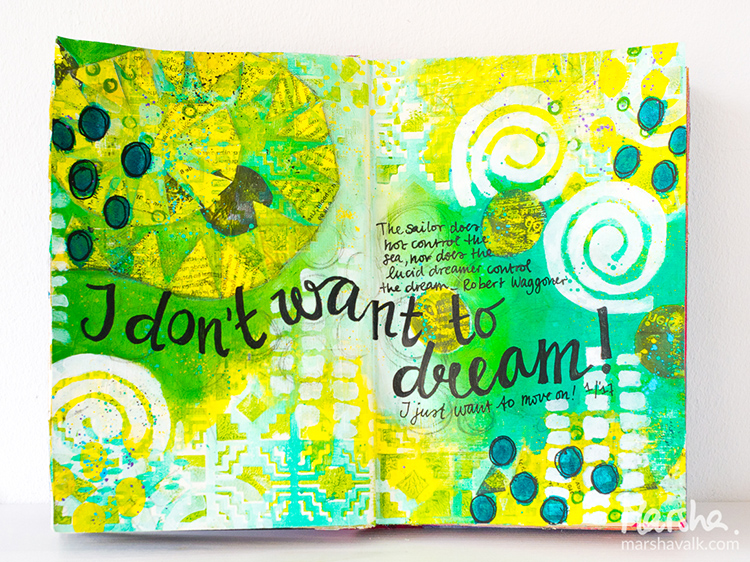 The sailor does
not control the
sea, nor does the
lucid dreamer control
the dream_ Robert Waggoner
I don't want to
dream!
I just want to move on! 1/17
Marsha.
marshavalk.com